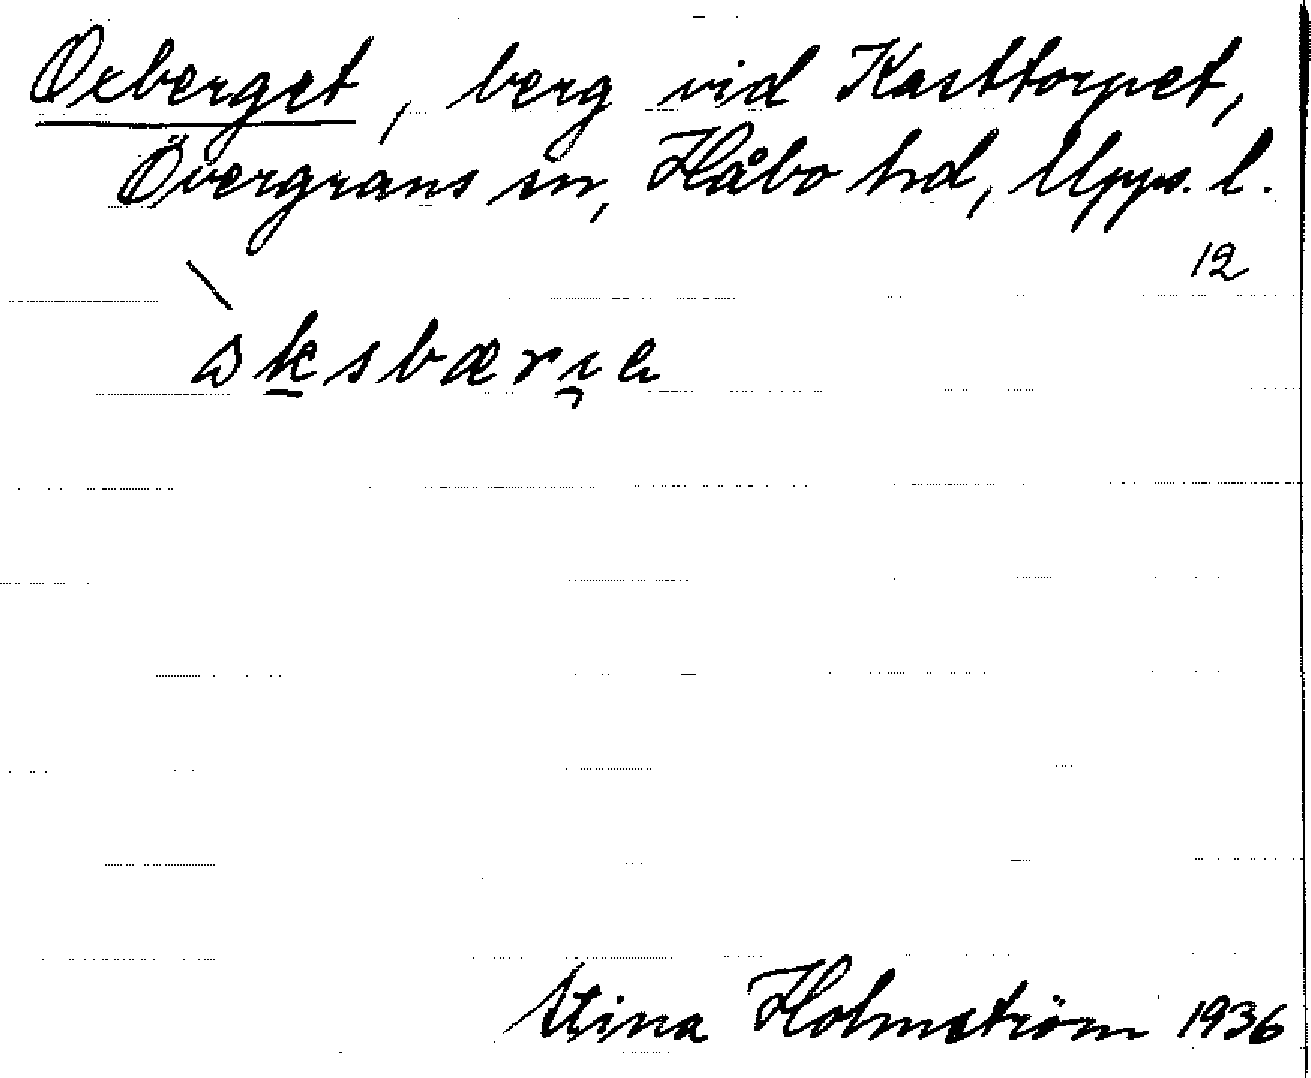 Oxberget, berg vid Karttorpet,
Övergrans sn, Håbo hd, Upps. l.
12
Stina Holmström 1936